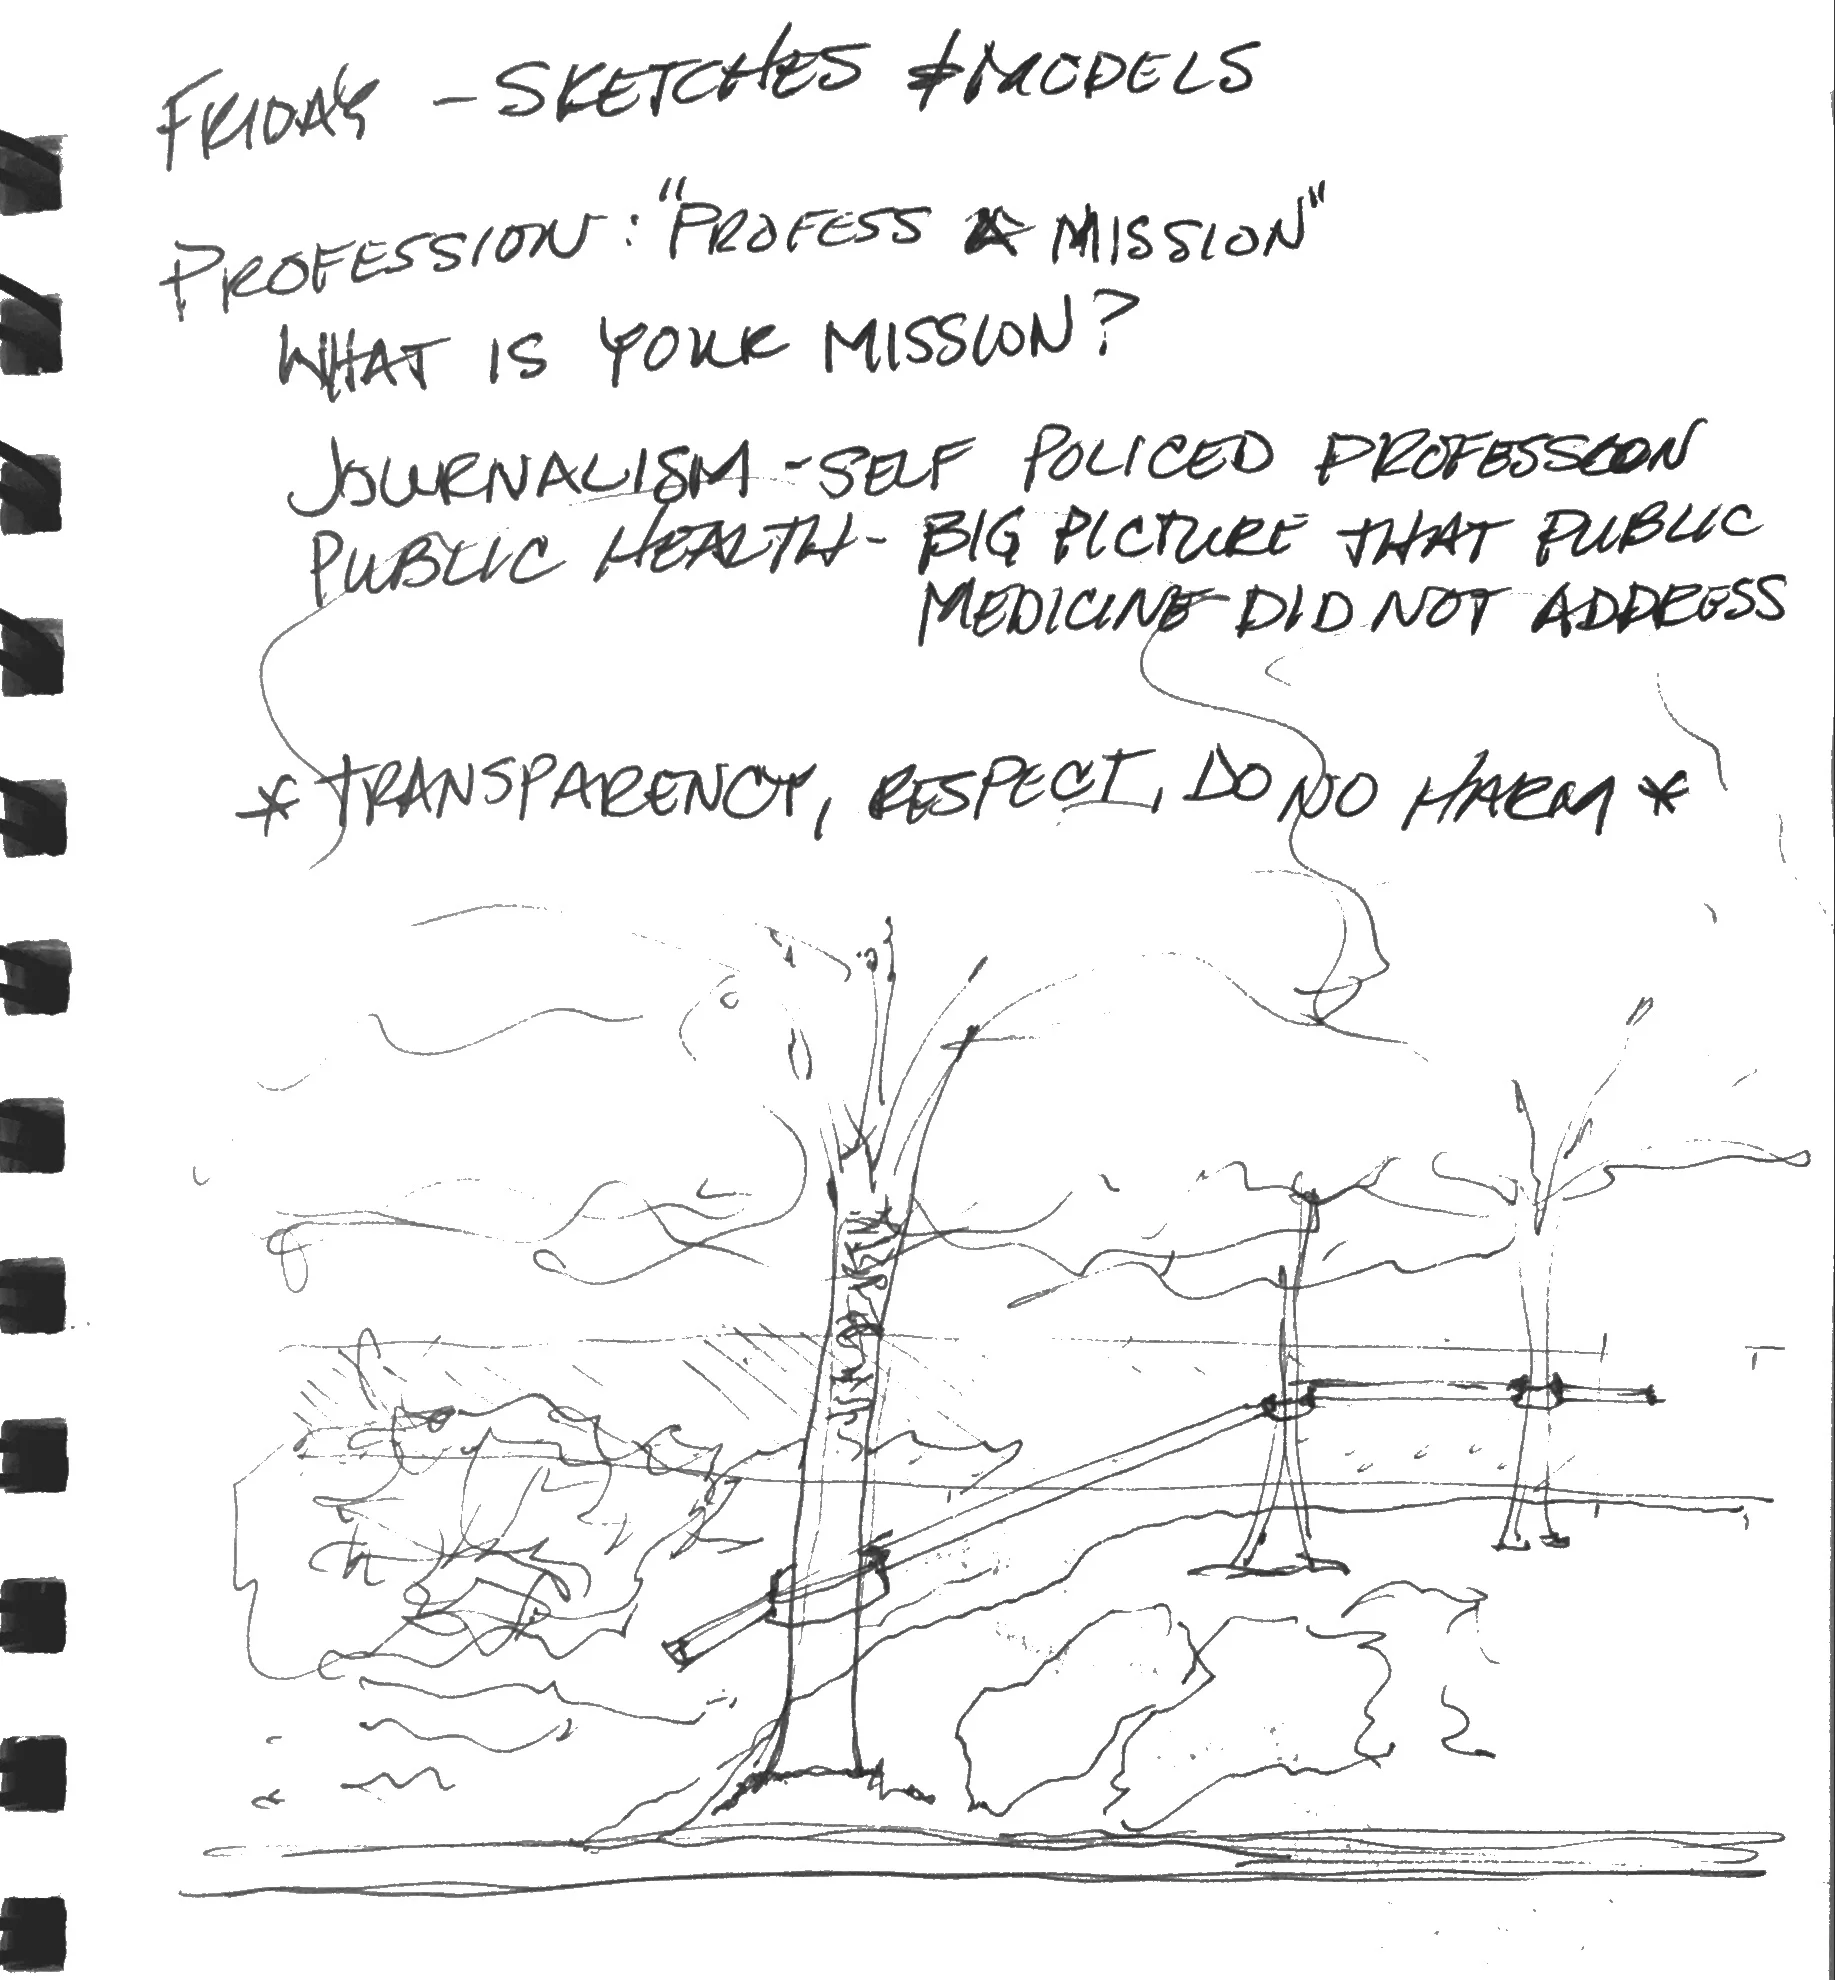 FRIDAY - SKETCHES & MODELS
PROFESSION: "PROFESS A MISSION"
WHAT IS YOUR MISSION?
JOURNALISM - SELF POLICED PROFESSION
PUBLIC HEALTH - BIG PICTURE THAT PUBLIC
MEDICINE DID NOT ADDRESS
* TRANSPARENCY, RESPECT, DO NO HARM *